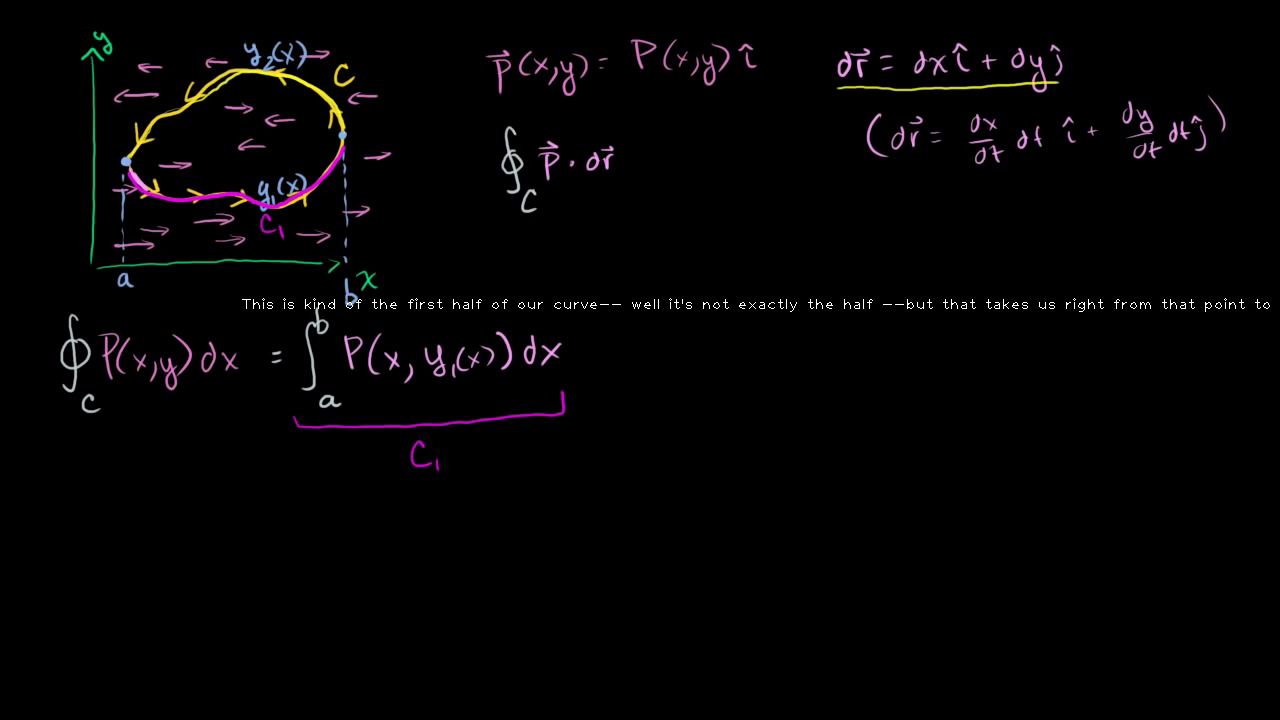 y
y₂(x)
C
y₁(x)
C₁
a
b
x
p⃗(x,y) = P(x,y) î
∮_C p⃗ · dr⃗
dr⃗ = dx î + dy ĵ
(dr⃗ = dx/dt dt î + dy/dt dt ĵ)
This is kind of the first half of our curve-- well it's not exactly the half --but that takes us right from that point to
∮_C P(x,y) dx = ∫_a^b P(x, y₁(x)) dx
C₁